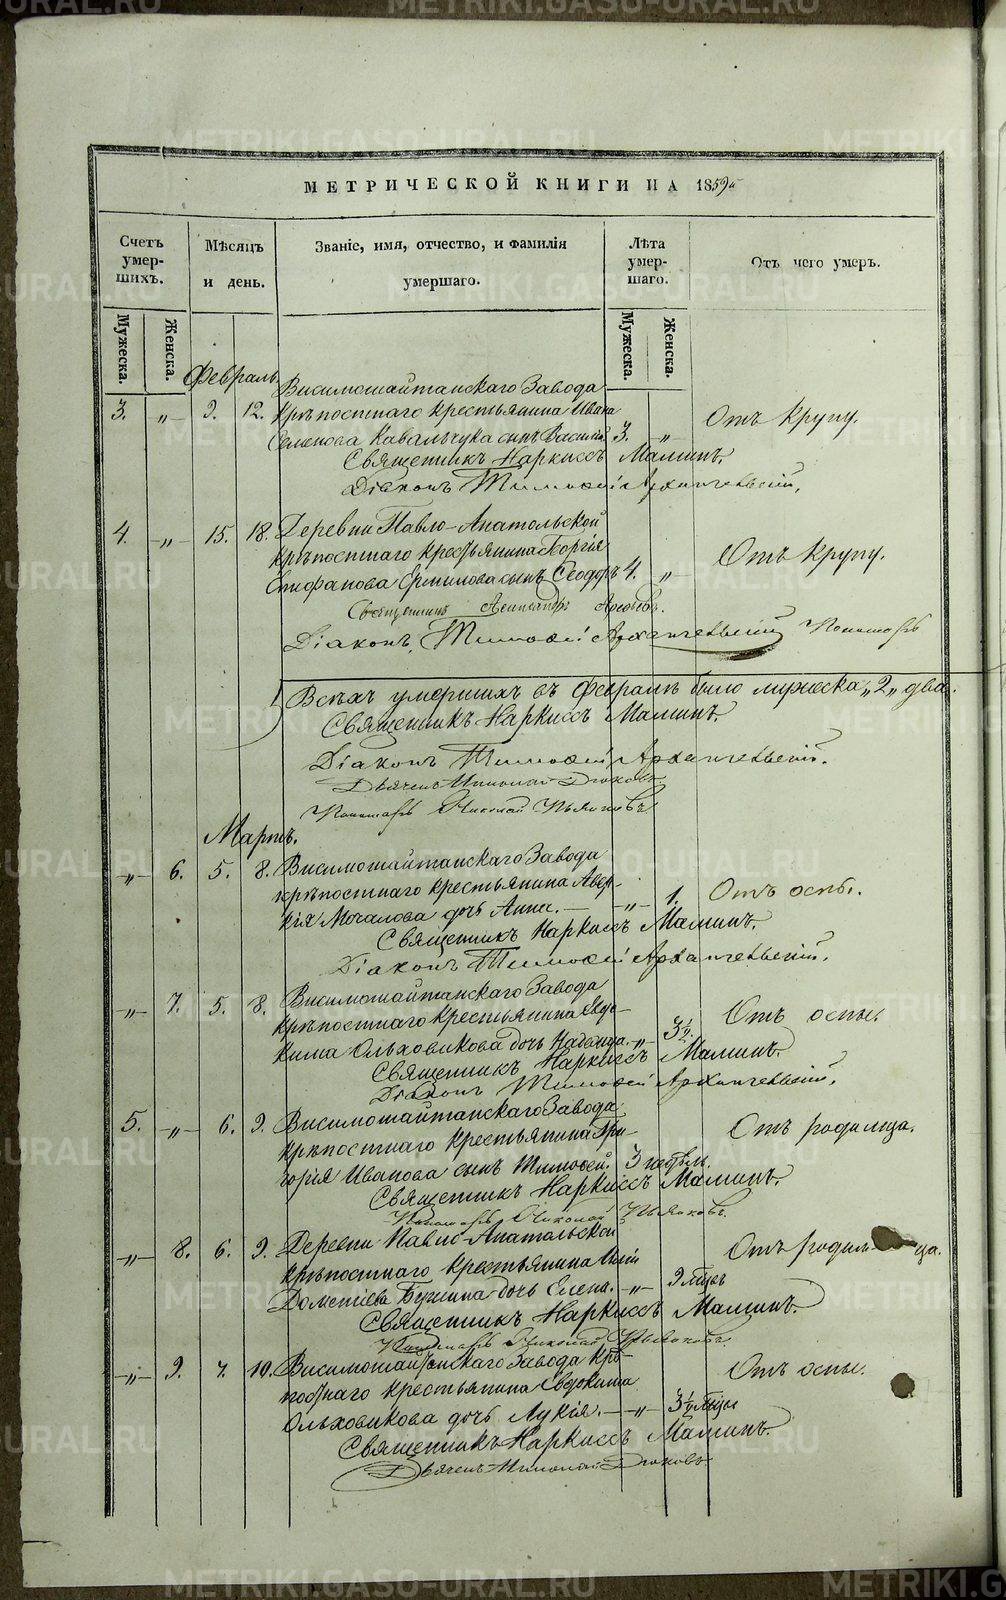 METRIKI.GASO-URAL.RU
МЕТРИЧЕСКОЙ КНИГИ НА 1859 г.
Счетъ умер-шихъ.
Мѣсяцъ и день.
Званіе, имя, отчество, и фамилія умершаго.
Лѣта умер-шаго.
Отъ чего умеръ.
Мужеска. Женска.
Мужеска. Женска.
Февраль
Висимошайтанскаго Завода
3. „ 9. 12. крѣпостнаго крестьянина Ивана
Семенова Кавальчука сынъ Василій 3. „ Отъ крупу.
Священникъ Наркиссъ Маминъ.
Діаконъ Тимофей Архангельскій.
4. „ 15. 18. Деревни Павло-Анатольской
крѣпостнаго крестьянина Георгія
Епифанова Ермилова сынъ Феодоръ 4. „ Отъ крупу.
Священникъ
Діаконъ Тимофей Архангельскій Пономарь
Всѣхъ умершихъ въ Февралѣ было мужеска „2„ два.
Священникъ Наркиссъ Маминъ.
Діаконъ Тимофей Архангельскій.
Дьячекъ Николай Дюковъ.
Пономарь Николай
Мартъ.
„ 6. 5. 8. Висимошайтанскаго Завода
крѣпостнаго крестьянина Авер-
кія Мочалова дочь Анна. „ 1. Отъ оспы.
Священникъ Наркиссъ Маминъ.
Діаконъ Тимофей Архангельскій.
„ 7. 5. 8. Висимошайтанскаго Завода
крѣпостнаго крестьянина Евдо-
кима Ольховикова дочь Надежда. „ 3½. Отъ оспы.
Священникъ Наркиссъ Маминъ.
Діаконъ Тимофей Архангельскій.
5. „ 6. 9. Висимошайтанскаго Завода
крѣпостнаго крестьянина Гри-
горія Иванова сынъ Тимофей. 3 Отъ родимца.
Священникъ Наркиссъ Маминъ.
Пономарь Николай
„ 8. 6. 9. Деревни Павло-Анатольской
крѣпостнаго крестьянина
Дометіева Бушина дочь Елена. „ 9 мѣся Отъ родимца.
Священникъ Наркиссъ Маминъ.
Пономарь Николай
„ 9. 7. 10. Висимошайтанскаго Завода крѣ-
постнаго крестьянина Евдокима
Ольховикова дочь Лукія. „ 3½ мѣсы Отъ оспы.
Священникъ Наркиссъ Маминъ.
Дьячекъ Николай Дюковъ